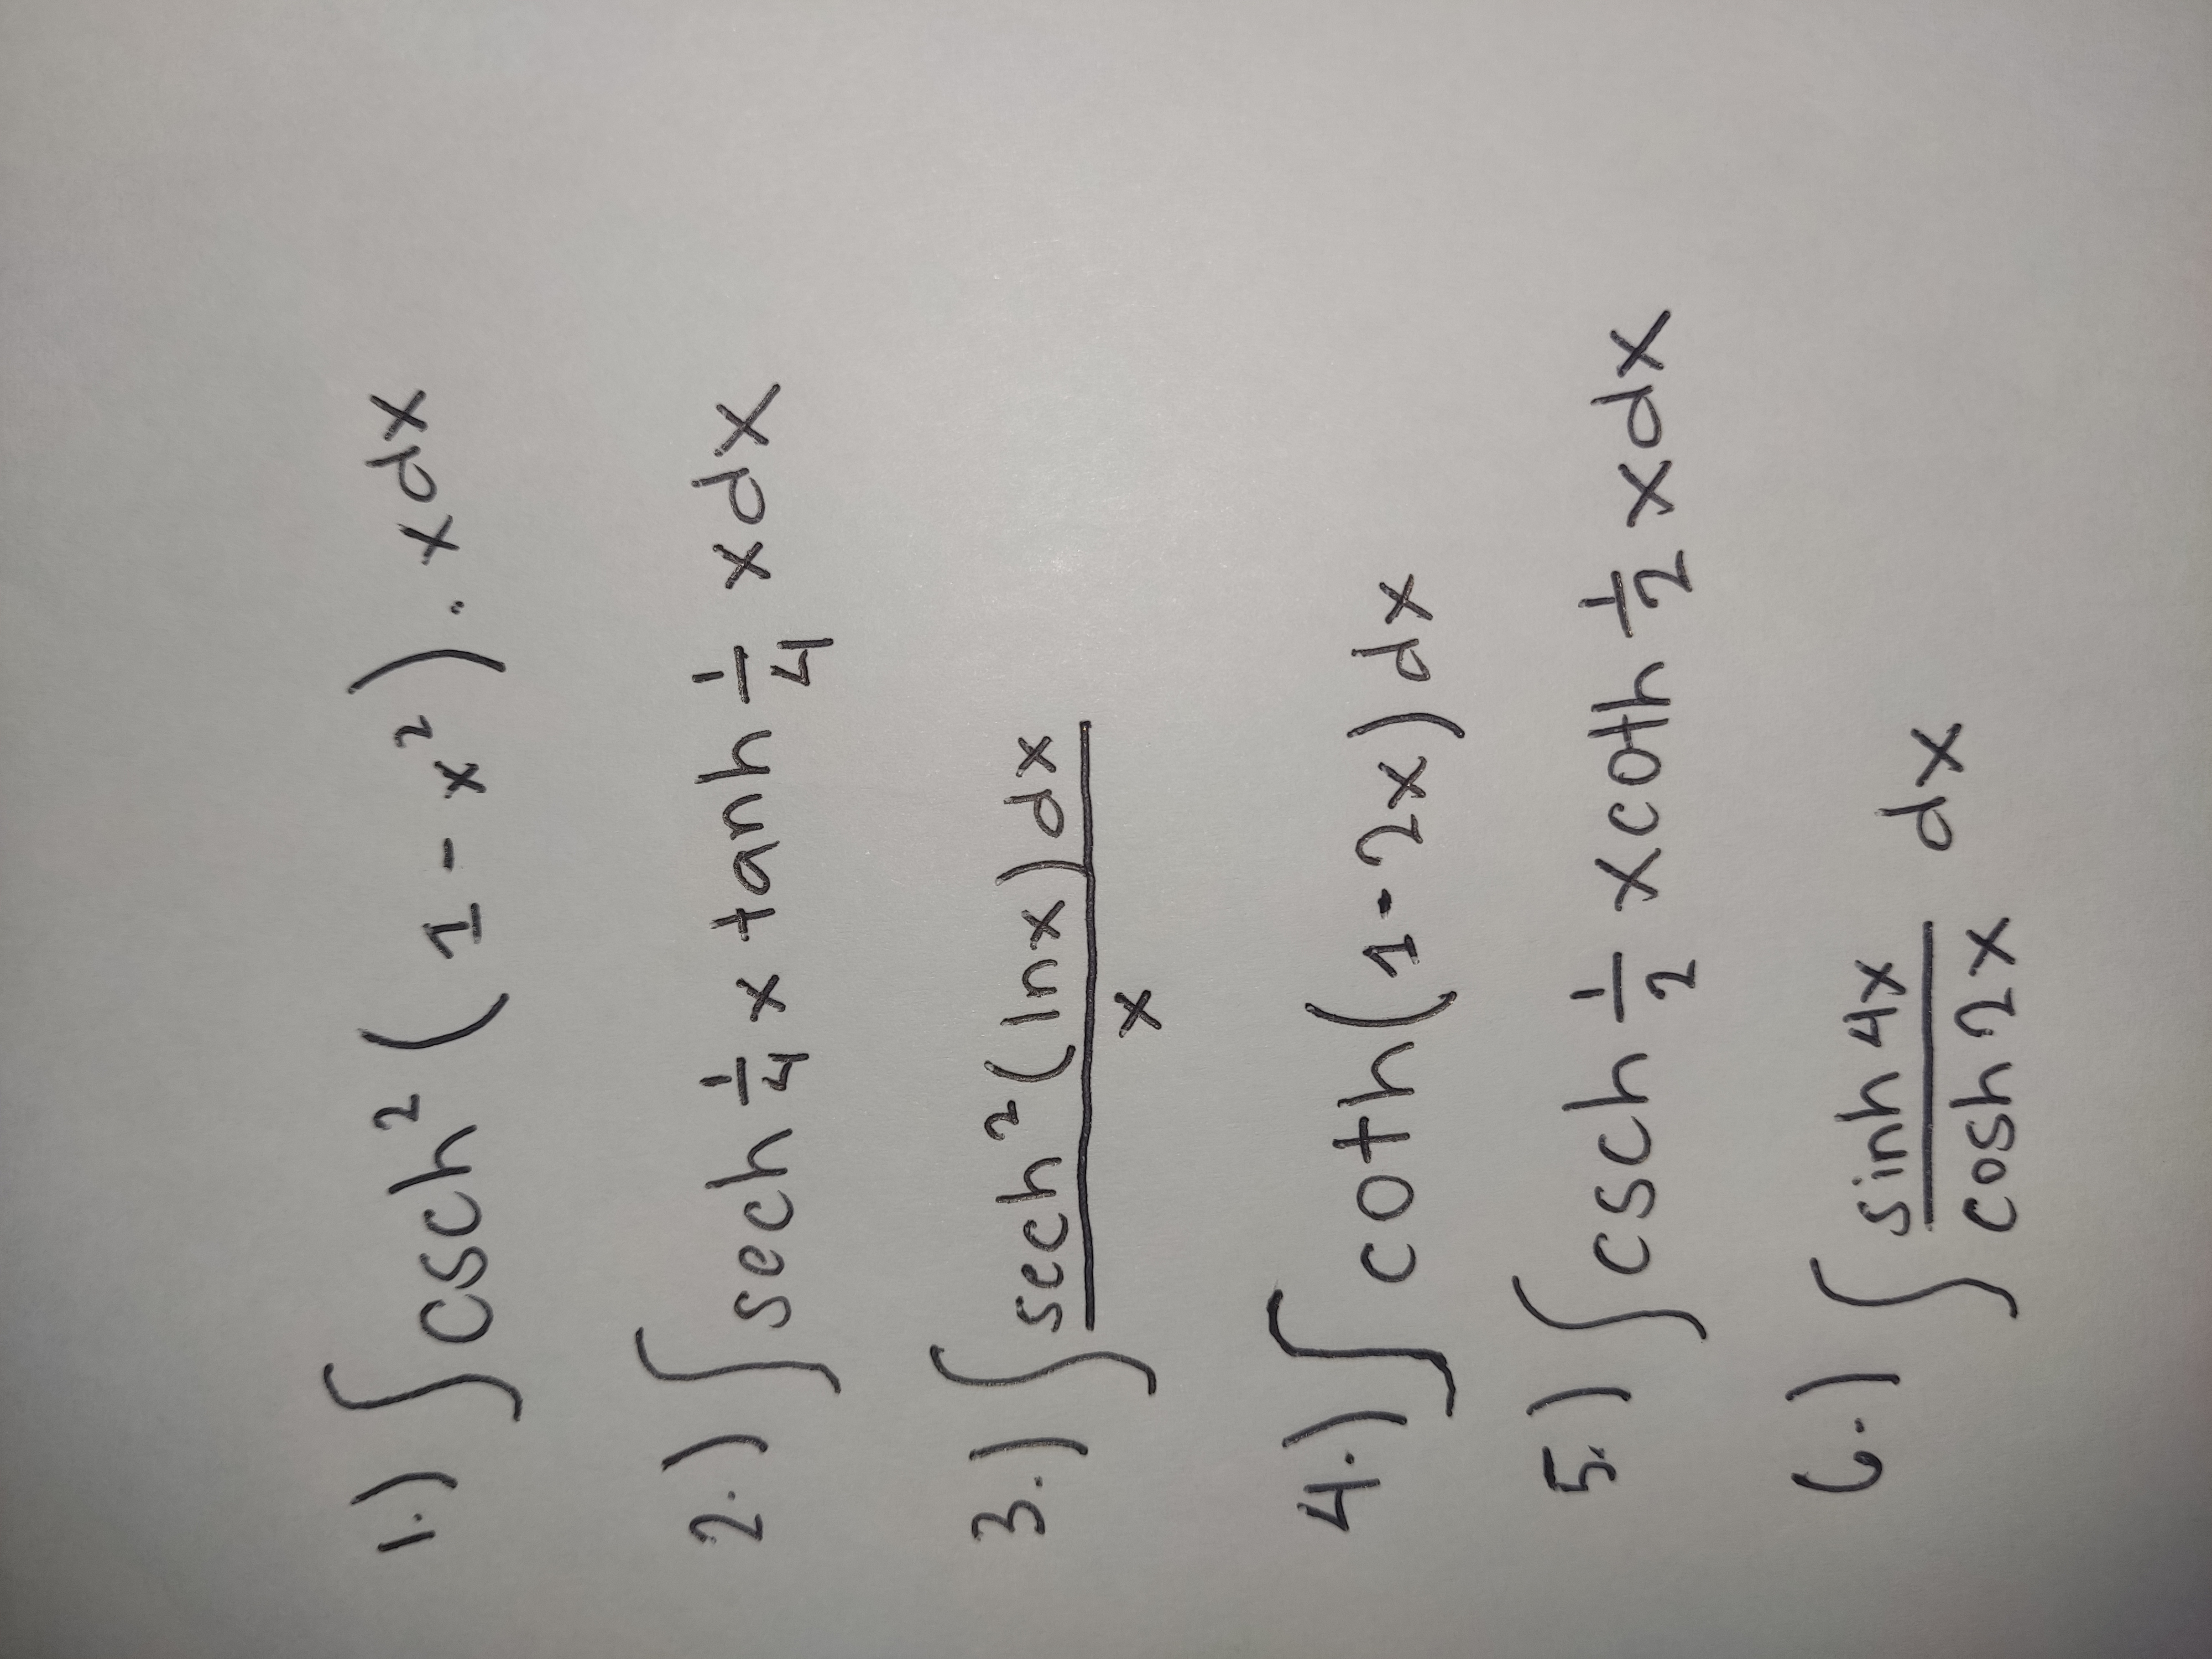 1.) ∫ csch² (1 - x²) . x dx
2.) ∫ sech 1/4 x tanh 1/4 x dx
3.) ∫ sech² (ln x) dx / x
4.) ∫ coth (1 - 2x) dx
5.) ∫ csch 1/2 x coth 1/2 x dx
6.) ∫ sinh 4x / cosh 2x dx